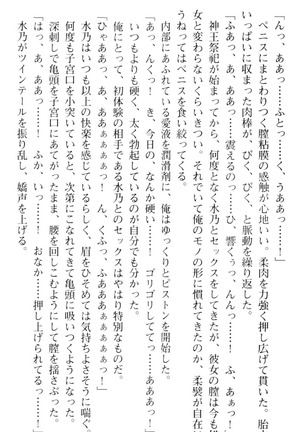 「んっ、ああっ……ふとっ……く、うああっ！」
ペニスにまとわりつく膣粘膜の感触が心地いい。柔肉を力強く押し広げて貫いた。胎
いっぱいに収まった肉棒が、びく、びく、と脈動を繰り返した。
「ふあっ、あ、ああっ……震えるのっ……ひ、響くぅっ、んんっ……！　ふ、あぁっ」
神王祭祀が始まってから、何度となく水乃とのセックスをしてきたが、彼女の膣は今も処
女と変わらないくらいきつい。それでいて俺のモノの形に慣れてきたのか、柔襞が自在に
うねってはペニスを食い絞ってくる。
内部にあふれている愛液を潤滑剤に、俺はゆっくりとピストンを開始した。
「あっ、んくっ！　き、今日の、なんか硬い……！　ゴリゴリしてて……あああっ！」
いつもよりも硬く、太く勃起しているのが自分でも分かった。
俺にとって、初体験の相手である水乃とのセックスはやはり特別なものだ。
「ひゃああっ、あっ、うあっ……！　ん、くふっ、ふああああぁぁぁっ！」
水乃はいつも以上の快楽を感じているらしく、眉をひそめては気持ちよさそうに喘ぐ。
何度も子宮口を小突いていると、次第にこなれてきて亀頭に吸いつくようになった。
深刺しで亀頭を子宮口にあてがったまま、腰を回しこむようにして膣を揺さぶった。
「はっ、ぁ、ああっ……！　ふか、いっ……！　おなか……押し上げられてるっ……！」
水乃がツインテールを振り乱し、嬌声を上げる。